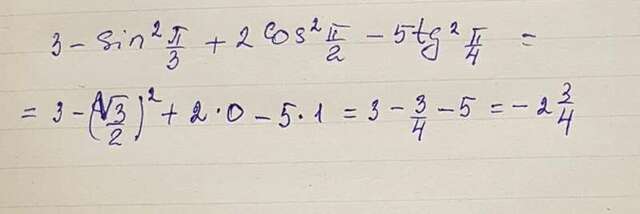 3 - sin² π/3 + 2 cos² π/2 - 5 tg² π/4 =
= 3 - (√3/2)² + 2·0 - 5·1 = 3 - 3/4 - 5 = -2 3/4